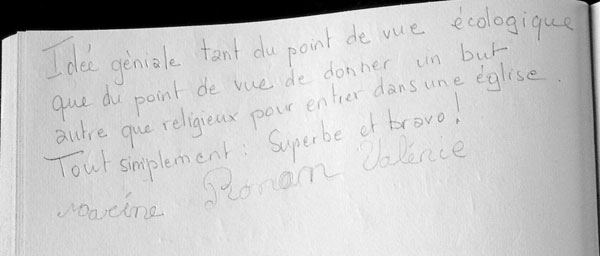 Idée géniale tant du point de vue écologique
que du point de vue de donner un but
autre que religieux pour entrer dans une église.
Tout simplement : Superbe et bravo !
Ronan Valence